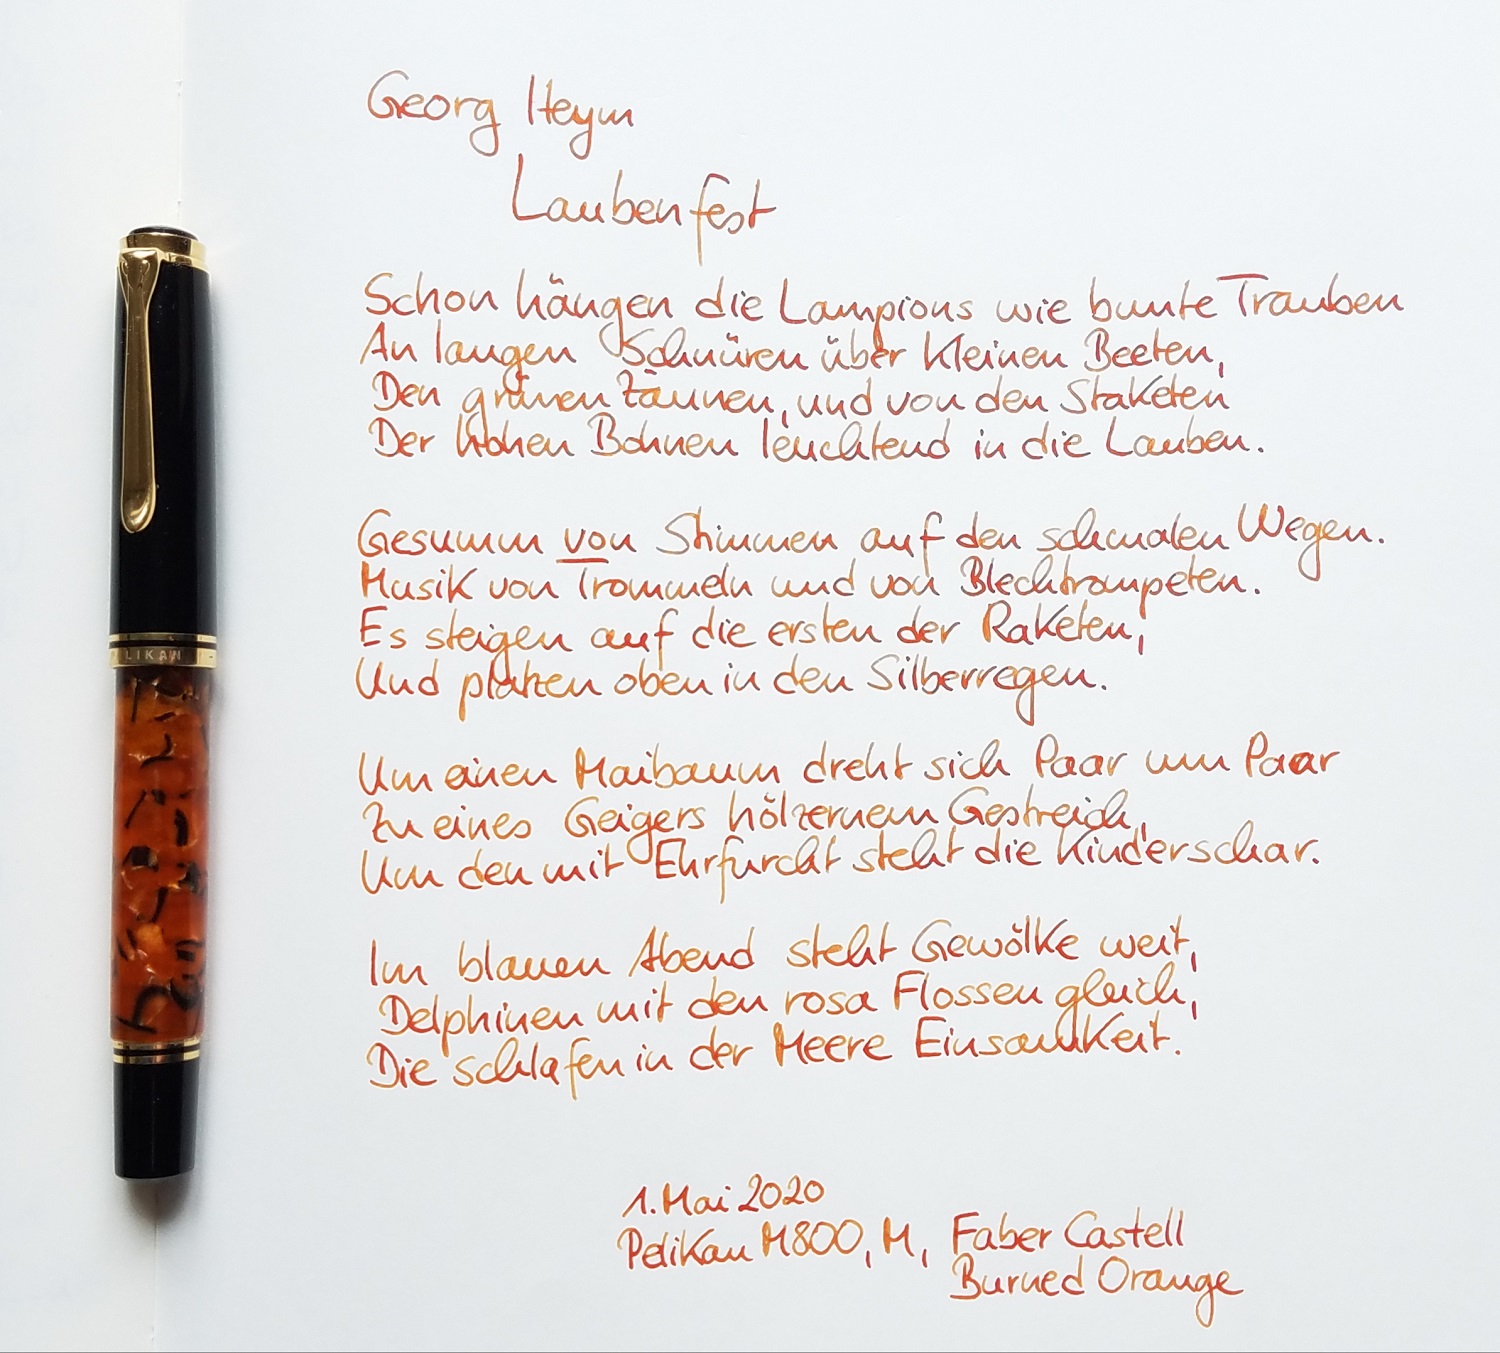 Georg Heym
Laubenfest
Schon hängen die Lampions wie bunte Trauben
An langen Schnüren über kleinen Beeten,
Den grünen Zäunen, und von den Staketen
Der hohen Bohnen leuchtend in die Lauben.
Gesumm von Stimmen auf den schmalen Wegen.
Musik von Trommeln und von Blechtrompeten.
Es steigen auf die ersten der Raketen,
Und platzen oben in den Silberregen.
Um einen Maibaum dreht sich Paar um Paar
Zu eines Geigers hölzernem Gestreich,
Um den mit Ehrfurcht steht die Kinderschar.
Im blauen Abend steht Gewölke weit,
Delphinen mit den rosa Flossen gleich,
Die schlafen in der Meere Einsamkeit.
1. Mai 2020
Pelikan M800, M, Faber Castell
Burned Orange
LIKAN